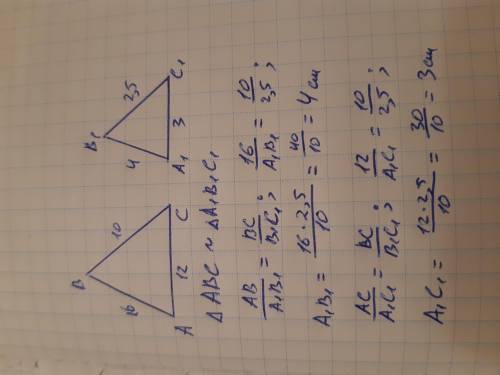 B
16
10
A
12
C
B₁
4
2,5
A₁
3
C₁
Δ ABC ~ Δ A₁B₁C₁
AB/A₁B₁ = BC/B₁C₁; 16/A₁B₁ = 10/2,5;
A₁B₁ = 16·2,5/10 = 40/10 = 4 см
AC/A₁C₁ = BC/B₁C₁; 12/A₁C₁ = 10/2,5;
A₁C₁ = 12·2,5/10 = 30/10 = 3 см